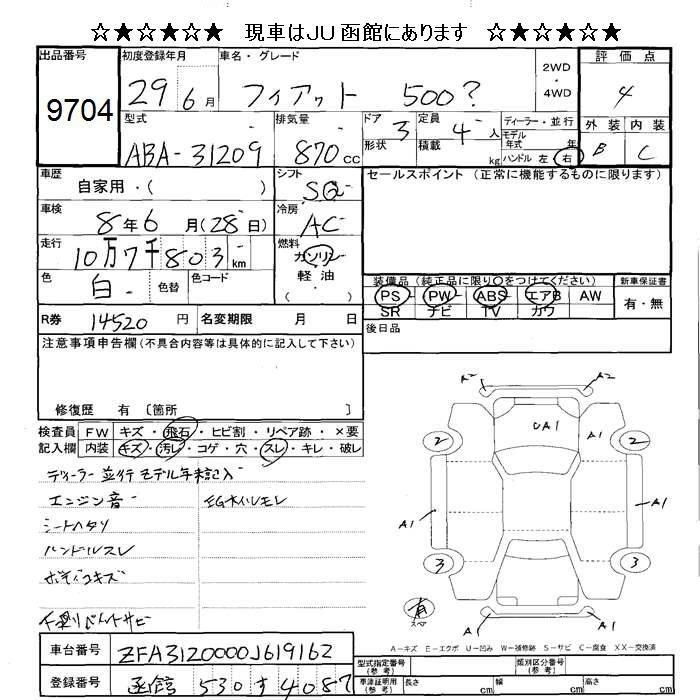 ☆★☆★☆★ 現車はJU函館にあります ☆★☆★☆★
出品番号 初度登録年月 車名・グレード 評価点
9704 29 6月 フィアット 500? 2WD・4WD 4
型式 排気量 ドア 3 定員 4人 ディーラー・並行 外装 内装
ABA-31209 870cc 形状 積載 kg モデル年式 年 B C
ハンドル 左 右
車歴 自家用・( ) シフト SQ セールスポイント(正常に機能するものに限ります)
車検 8年6月(28日) 冷房 AC
走行 10万7千803km 燃料 ガソリン
色 白 色替 色コード 軽油
( )
装備品(純正品に限り○をつけてください) 新車保証書
PS PW ABS エアB AW 有・無
SR ナビ TV カワ
R券 14520円 名変期限 月 日 後日品
注意事項申告欄(不具合内容等は具体的に記入して下さい)
修復歴 有 〔箇所 〕
検査員 FW キズ・飛石・ヒビ割・リペア跡・×要
記入欄 内装 キズ・汚レ・コゲ・穴・スレ・キレ・破レ
ディーラー 並行 モデル年未記入
エンジン音 EGオイルモレ
シートヘタリ
ハンドルスレ
ボディコキズ
下廻り サビ
A2 A2
UA1 A1
2 2
A1 A1
3 3
有
スペア
A1 A1
A-キズ E-エクボ U-凹み W-補修跡 S-サビ C-腐食 XX-交換済
車台番号 ZFA3120000J619162 型式指定番号(参考) 類別区分番号(参考)
登録番号 函館 530 す 4087 車庫証明用(参考) 長さ cm 幅 cm 高さ cm